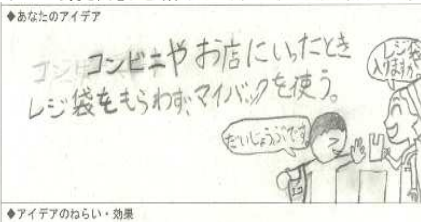 ◆あなたのアイデア
コンビニやお店にいったとき
レジ袋をもらわず、マイバックを使う。
レジ袋
入りますか
だいじょうぶです
◆アイデアのねらい・効果